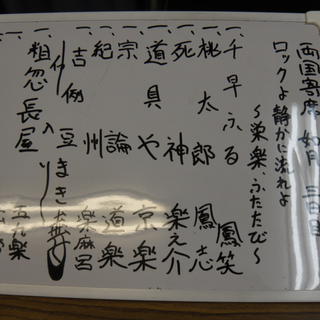 両国寄席 如月 三日目
ロックよ静かに流れよ
〜栄楽、ふたたび〜
一、千早ふる 鳳笑
一、桃太郎 鳳志
一、死神 楽之介
一、道具や 京楽
一、宗論 道楽
一、紀州 楽麻呂
一、吉例 豆まき
仲入り
一、粗忽長屋 五九楽